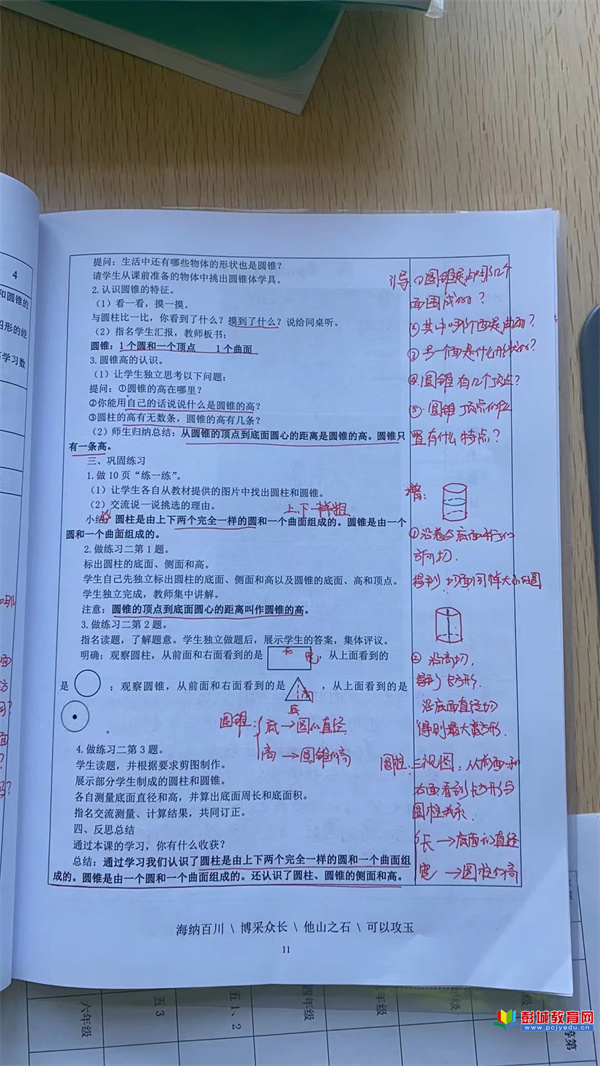 提问：生活中还有哪些物体的形状也是圆锥？
请学生从课前准备的物体中挑出圆锥体学具。
2.认识圆锥的特征。
（1）看一看，摸一摸。
与圆柱比一比，你看到了什么？摸到了什么？说给同桌听。
（2）指名学生汇报，教师板书：
圆锥：1个圆和一个顶点　1个曲面
3.圆锥高的认识。
（1）让学生独立思考以下问题：
提问：①圆锥的高在哪里？
②你能用自己的话说说什么是圆锥的高？
③圆柱的高有无数条，圆锥的高有几条？
（2）师生归纳总结：从圆锥的顶点到底面圆心的距离是圆锥的高。圆锥只
有一条高。
三、巩固练习
1.做10页“练一练”。
（1）让学生各自从教材提供的图片中找出圆柱和圆锥。
（2）交流说一说挑选的理由。
上下一样粗
小结：圆柱是由上下两个完全一样的圆和一个曲面组成的。圆锥是由一个
圆和一个曲面组成的。
2.做练习二第1题。
标出圆柱的底面、侧面和高。
学生自己先独立标出圆柱的底面、侧面和高以及圆锥的底面、高和顶点。
学生独立完成，教师集中讲解。
注意：圆锥的顶点到底面圆心的距离叫作圆锥的高。
3.做练习二第2题。
指名读题，了解题意。学生独立做题后，展示学生的答案，集体评议。
明确：观察圆柱，从前面和右面看到的是 长 宽 ，从上面看到的
是 ；观察圆锥，从前面和右面看到的是 高 ，从上面看到的是
底
。
圆锥：底→圆的直径
高→圆锥的高
4.做练习二第3题。
学生读题，并根据要求剪图制作。
展示部分学生制成的圆柱和圆锥。
各自测量底面直径和高，并算出底面周长和底面积。
指名交流测量、计算结果，共同订正。
四、反思总结
通过本课的学习，你有什么收获？
总结：通过学习我们认识了圆柱是由上下两个完全一样的圆和一个曲面组
成的。圆锥是由一个圆和一个曲面组成的。还认识了圆柱、圆锥的侧面和高。
引导：①圆锥是由哪几个
面围成的？
②其中哪个面是曲面？
③另一个面是什么形状的？
④圆锥有几个顶点？
⑤圆锥顶点的位
置有什么特点？
增：
①沿着与底面平行的
方向切，
得到切面同样大小的圆
②沿高切，
得到长方形．
沿底面直径切
得到最大长方形．
圆柱：三视图：从前面和
右面看到长方形与
圆柱关系
长→底面的直径
宽→圆柱的高
海纳百川 \ 博采众长 \ 他山之石 \ 可以攻玉
11
4
和圆锥的
图形的经
学习数
六年级
五3
五1、2
四年级
彭城教育网
www.pcjyedu.cn